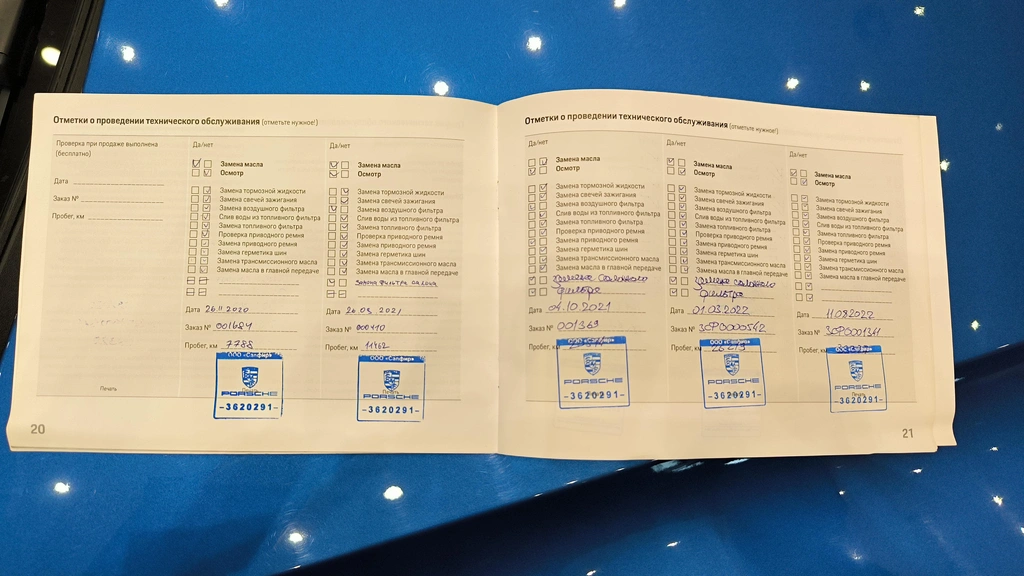 Отметки о проведении технического обслуживания (отметьте нужное!)
Проверка при продаже выполнена
(бесплатно)
Дата
Заказ №
Пробег, км
Печать
Да/нет
Замена масла
Осмотр
Замена тормозной жидкости
Замена свечей зажигания
Замена воздушного фильтра
Слив воды из топливного фильтра
Замена топливного фильтра
Проверка приводного ремня
Замена приводного ремня
Замена герметика шин
Замена трансмиссионного масла
Замена масла в главной передаче
Дата 26.11.2020
Заказ № 001684
Пробег, км 7788
ООО «Сапфир»
PORSCHE
-3620291-
Да/нет
Замена масла
Осмотр
Замена тормозной жидкости
Замена свечей зажигания
Замена воздушного фильтра
Слив воды из топливного фильтра
Замена топливного фильтра
Проверка приводного ремня
Замена приводного ремня
Замена герметика шин
Замена трансмиссионного масла
Замена масла в главной передаче
Замена фильтра салона
Дата 2021
Заказ № 000410
Пробег, км 11462
ООО «Сапфир»
PORSCHE
-3620291-
20
Отметки о проведении технического обслуживания (отметьте нужное!)
Да/нет
Замена масла
Осмотр
Замена тормозной жидкости
Замена свечей зажигания
Замена воздушного фильтра
Слив воды из топливного фильтра
Замена топливного фильтра
Проверка приводного ремня
Замена приводного ремня
Замена герметика шин
Замена трансмиссионного масла
Замена масла в главной передаче
замена салонного
фильтра
Дата 04.10.2021
Заказ № 001369
Пробег, км
ООО «Сапфир»
PORSCHE
-3620291-
Да/нет
Замена масла
Осмотр
Замена тормозной жидкости
Замена свечей зажигания
Замена воздушного фильтра
Слив воды из топливного фильтра
Замена топливного фильтра
Проверка приводного ремня
Замена приводного ремня
Замена герметика шин
Замена трансмиссионного масла
Замена масла в главной передаче
замена салонного
фильтра
Дата 01.03.2022
Заказ № ЗОР0000542
Пробег, км
ООО «Сапфир»
PORSCHE
-3620291-
Да/нет
Замена масла
Осмотр
Замена тормозной жидкости
Замена свечей зажигания
Замена воздушного фильтра
Слив воды из топливного фильтра
Замена топливного фильтра
Проверка приводного ремня
Замена приводного ремня
Замена герметика шин
Замена трансмиссионного масла
Замена масла в главной передаче
Дата 11.08.2022
Заказ №
Пробег, км
ООО «Сапфир»
PORSCHE
Печать
-3620291-
21